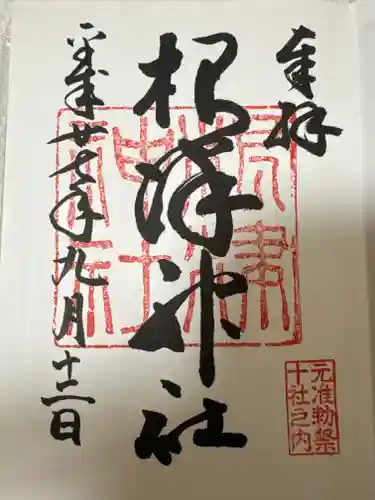 奉拝
根津神社
平成廿七年九月十二日
元准勅祭
十社之内